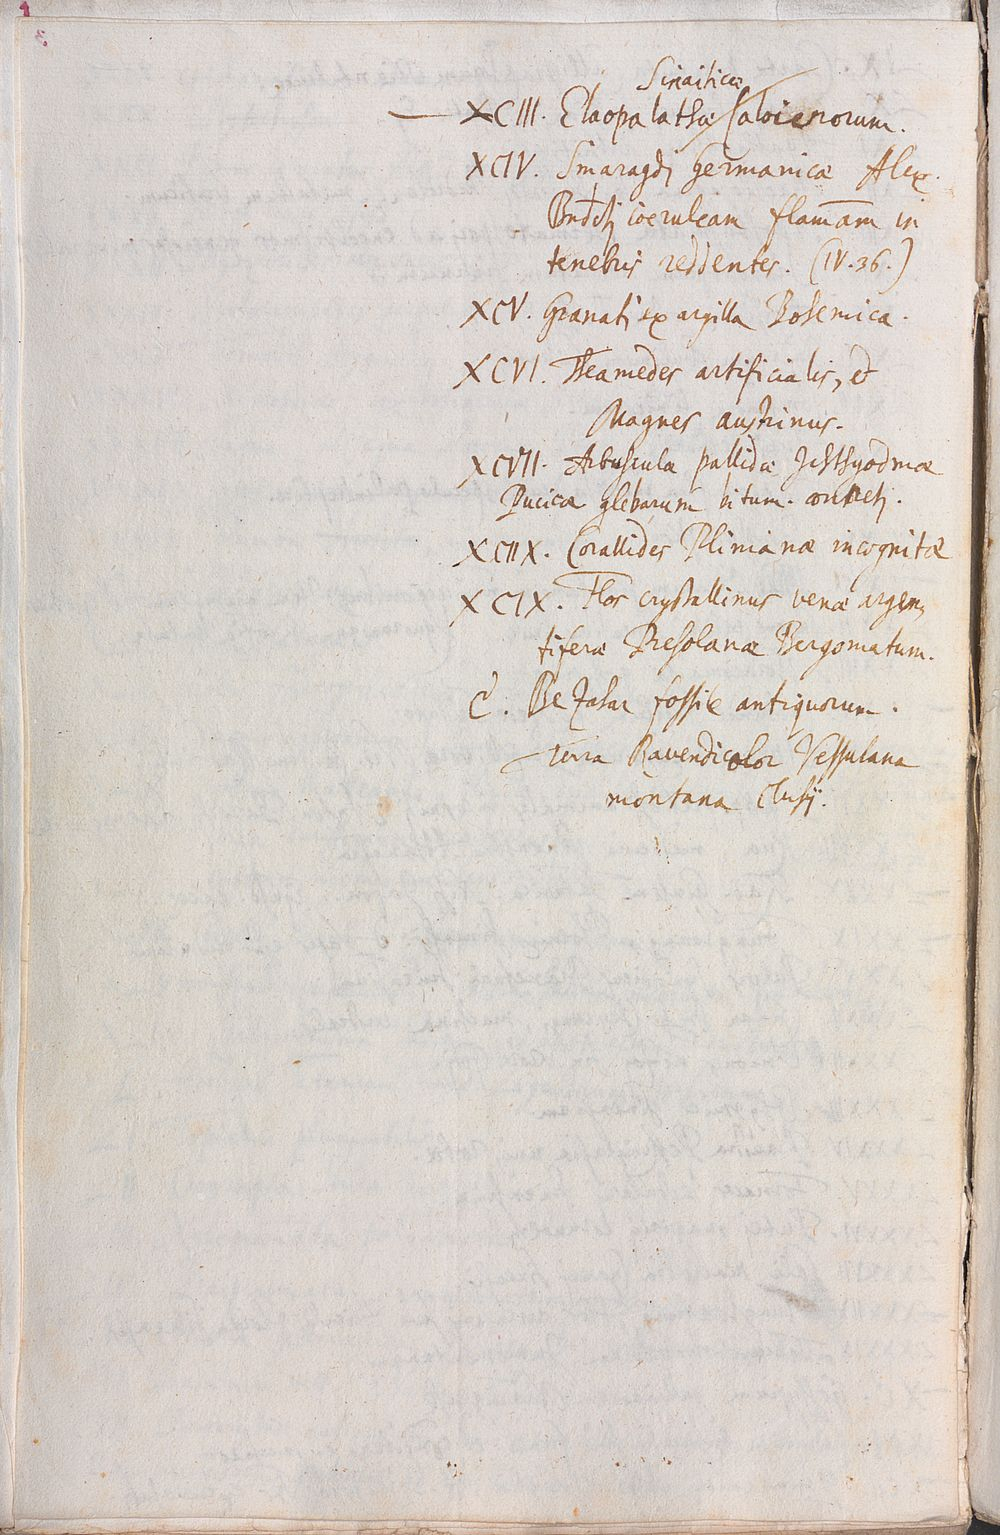 Sinaiticæ
XCIII. Elaopalathæ Saloicenorum.
XCIV. Smaragdj Germanicæ Alex.
coeruleam flamam in
tenebris reddentes. (IV. 36.)
XCV. Granatj ex argilla Bohemica.
XCVI. Theamedes artificialis, et
Magnes austrinus.
XCVII. Arbuscula pallida
glebarum bitum.
XCIIX. Corallides Plinianæ incognitæ
XCIX. Flos crystallinus venæ argen,
tiferæ Presolanæ Bergomatum.
C. Bezahar fossile antiquorum.
Terra Ravendicolor Vessulana
montana Clusij.